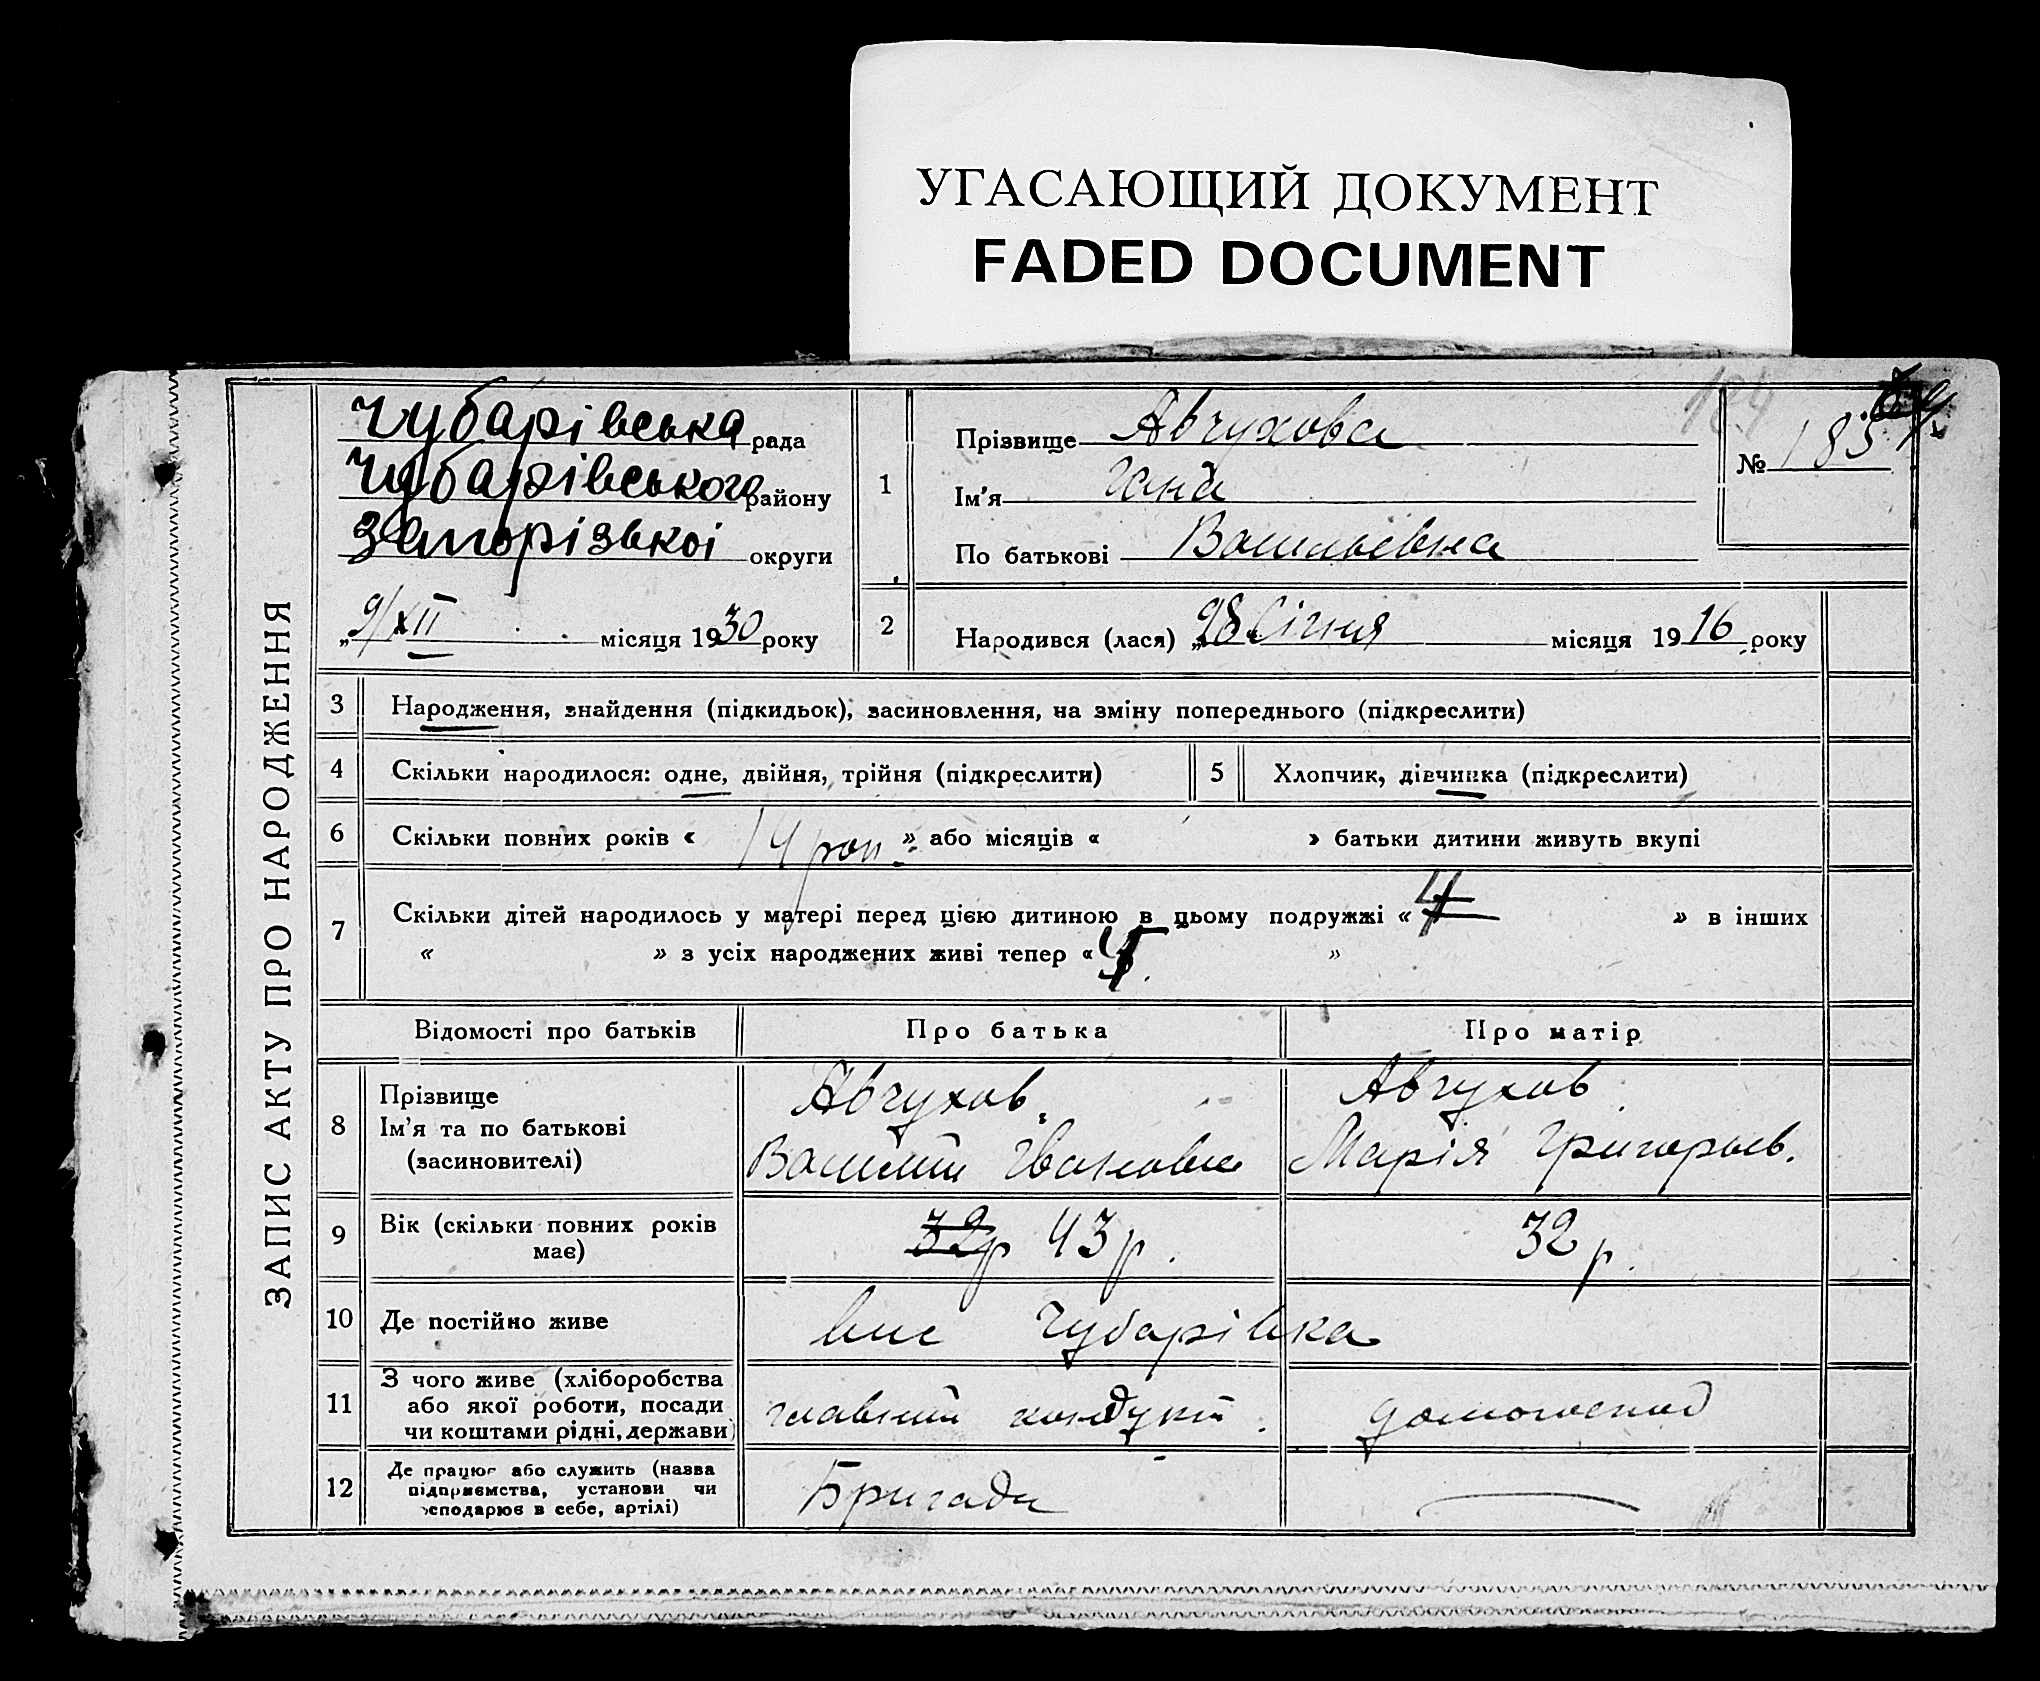 УГАСАЮЩИЙ ДОКУМЕНТ
FADED DOCUMENT
ЗАПИС АКТУ ПРО НАРОДЖЕННЯ
Чубарівська рада
Чубарівського району
Запорізької округи
„9/XII місяця 1930 року
1
Прізвище Авчухова
Ім’я Гана
По батькові Васильевна
184
№ 185
2
Народився (лася) „28 Січня місяця 1916 року
3 Народження, знайдення (підкидьок), засиновлення, на зміну попереднього (підкреслити)
4 Скільки народилося: одне, двійня, трійня (підкреслити)
5 Хлопчик, дівчинка (підкреслити)
6 Скільки повних років « 14 рок » або місяців « » батьки дитини живуть вкупі
7 Скільки дітей народилось у матері перед цією дитиною в цьому подружжі « » в інших
« » з усіх народжених живі тепер « »
Відомості про батьків Про батька Про матір
8 Прізвище
Ім’я та по батькові
(засиновителі)
Авчухов
Василий Іванович
Авчухов
Марія Григорьев.
9 Вік (скільки повних років
має)
32р 43р.
32 р.
10 Де постійно живе
вис Чубарівка
11 З чого живе (хліборобства
або якої роботи, посади
чи коштами рідні, держави)
главний кондукт.
домогоспод
12 Де працює або служить (назва
підприємства, установи чи
господарює в себе, артілі)
Бригади